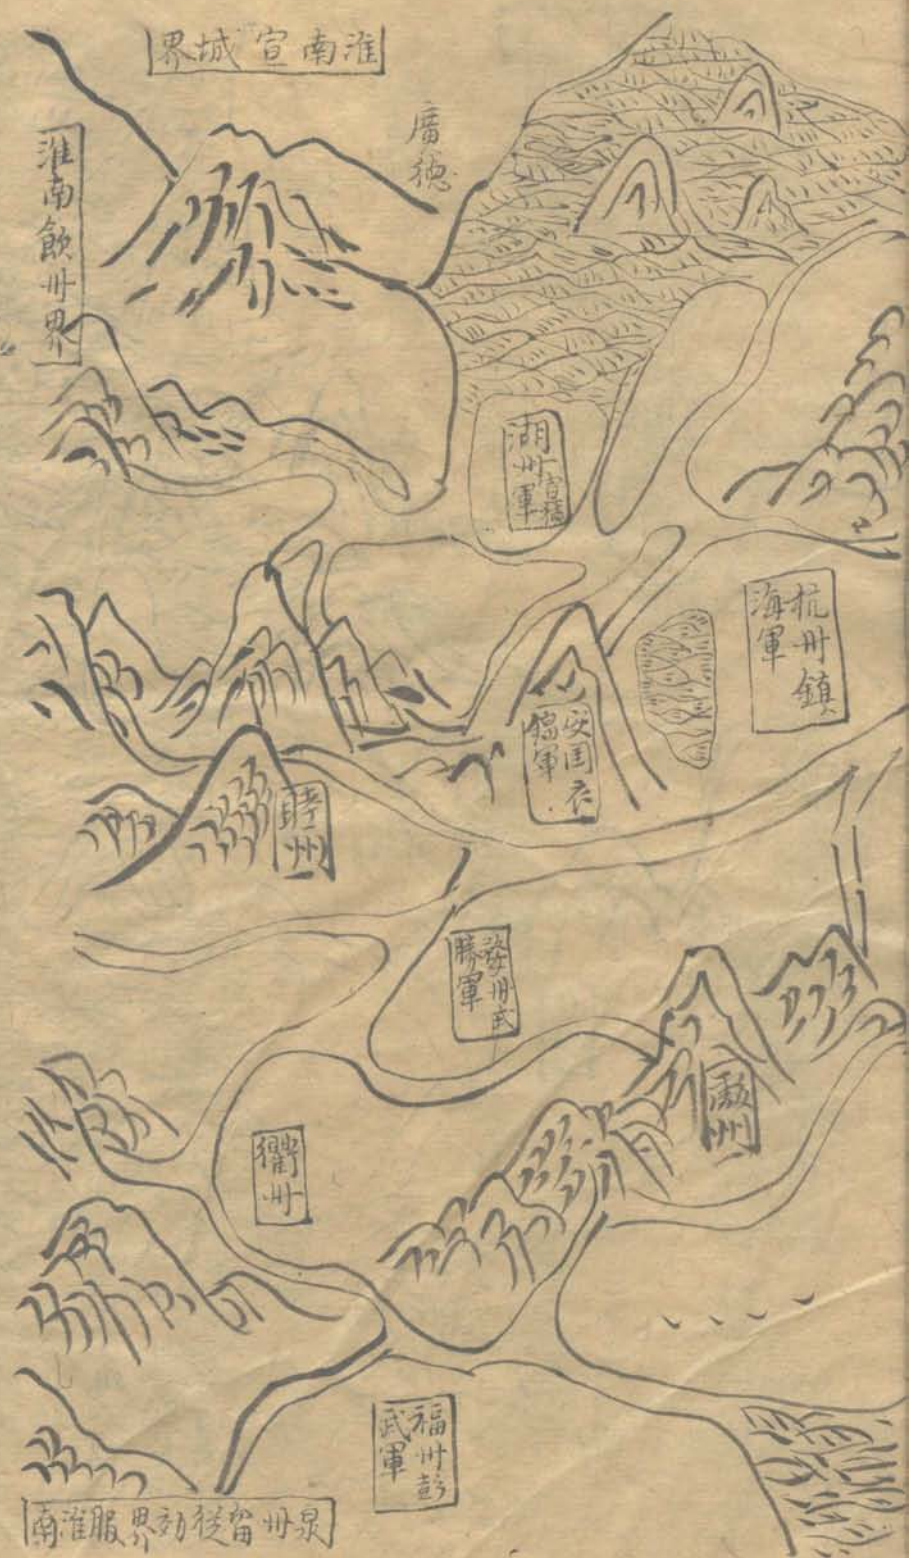 淮南宣城界
廣德
淮南歙州界
湖州宣德軍
杭州鎮
海軍
安国衣
錦軍
睦州
婺州武
勝軍
處州
衢州
福州彭
武軍
泉州留從効界服淮南